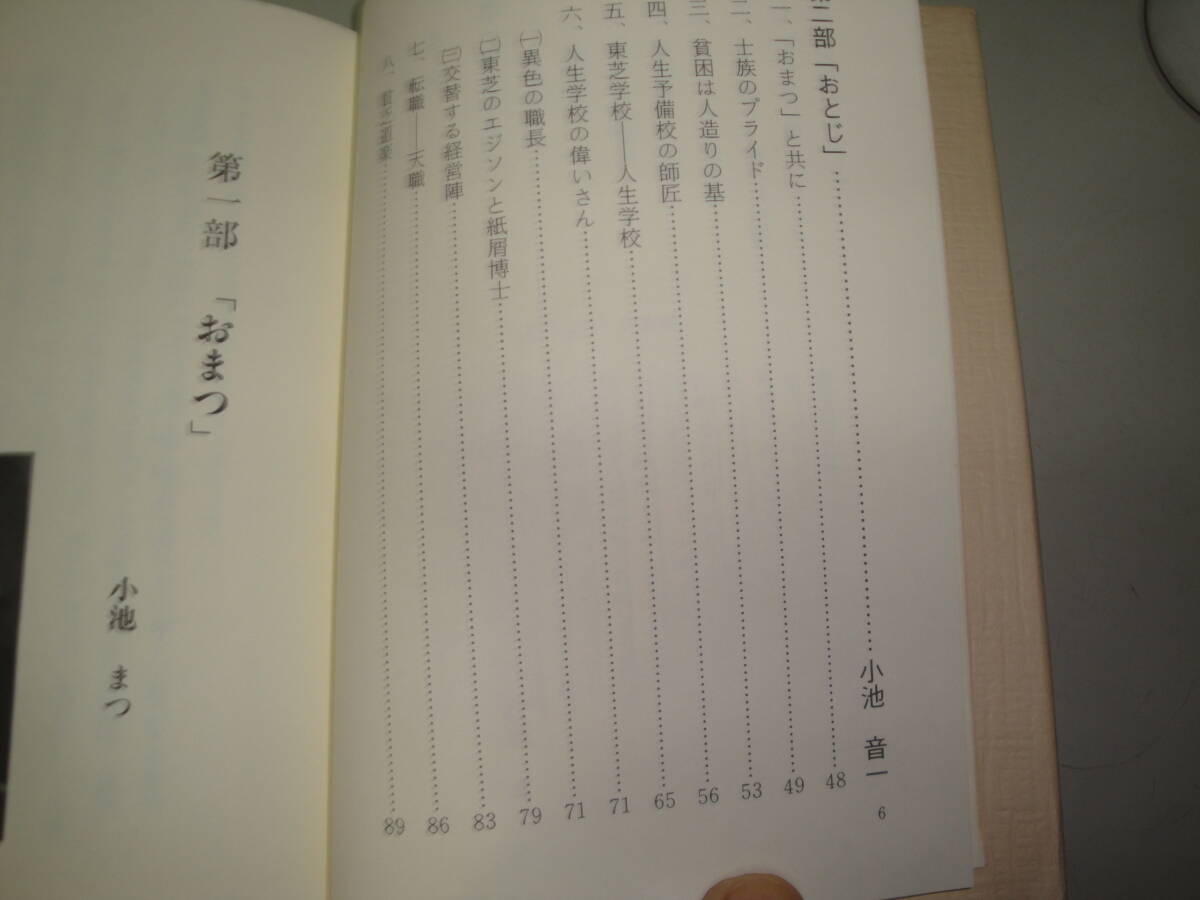 第二部「おとじ」……小池 音一
一、「おまつ」と共に……48
二、士族のプライド……49
三、貧困は人造りの基……53
四、人生予備校の師匠……56
五、東芝学校――人生学校……65
六、人生学校の偉いさん……71
㈠異色の職長……71
㈡東芝のエジソンと紙屑博士……79
㈢交替する経営陣……83
七、転職――天職……86
八、……89
6
第一部 「おまつ」
小池 まつ